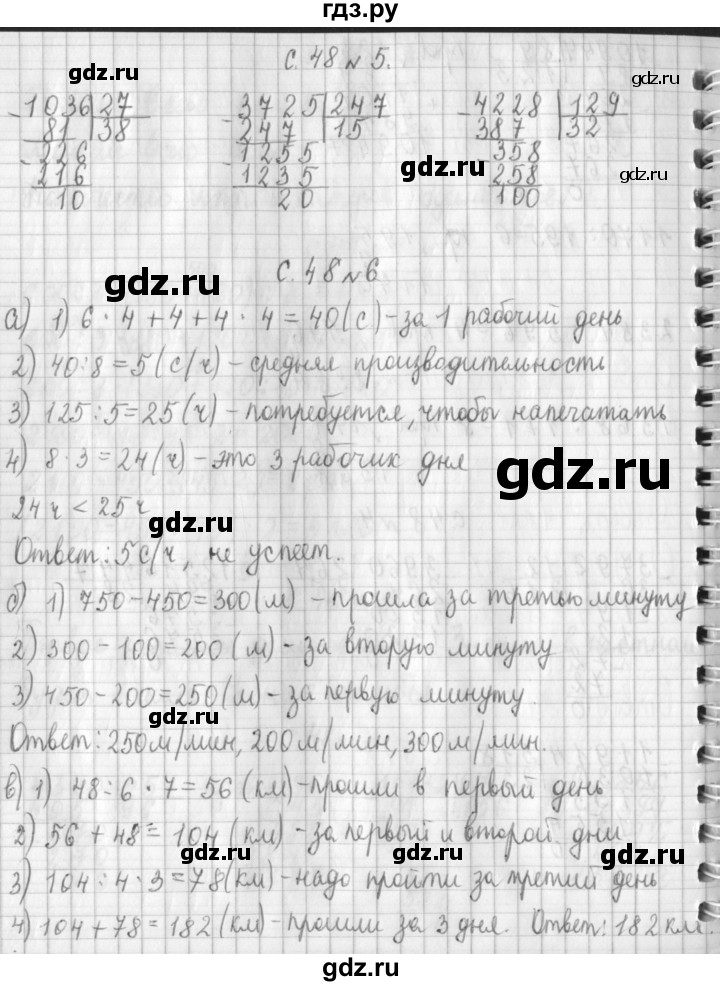 гдз.ру
С. 48 № 5.
gdz.ru
gdz.ru
1036 | 27
81 | 38
226
216
10
3725 | 247
247 | 15
1255
1235
20
4228 | 129
387 | 32
358
258
100
gdz.ru
gdz.ru
gdz.ru
С. 48 № 6
gdz.ru
а) 1) 6 · 4 + 4 + 4 · 4 = 40 (с) - за 1 рабочий день
2) 40 : 8 = 5 (с/ч) - средняя производительность
gdz.ru
3) 125 : 5 = 25 (ч) - потребуется, чтобы напечатать
4) 8 · 3 = 24 (ч) - это 3 рабочих дня
gdz.ru
24 ч < 25 ч
gdz.ru
Ответ: 5 с/ч, не успеет.
gdz.ru
б) 1) 750 - 450 = 300 (м) - прошла за третью минуту
2) 300 - 100 = 200 (м) - за вторую минуту
gdz.ru
3) 450 - 200 = 250 (м) - за первую минуту
gdz.ru
Ответ: 250 м/мин, 200 м/мин, 300 м/мин.
в) 1) 48 : 6 · 7 = 56 (км) - прошли в первый день
2) 56 + 48 = 104 (км) - за первый и второй дни
gdz.ru
gdz.ru
gdz.ru
3) 104 : 4 · 3 = 78 (км) - надо пройти за третий день
4) 104 + 78 = 182 (км) - прошли за 3 дня. Ответ: 182 км.
gdz.ru
gdz.ru